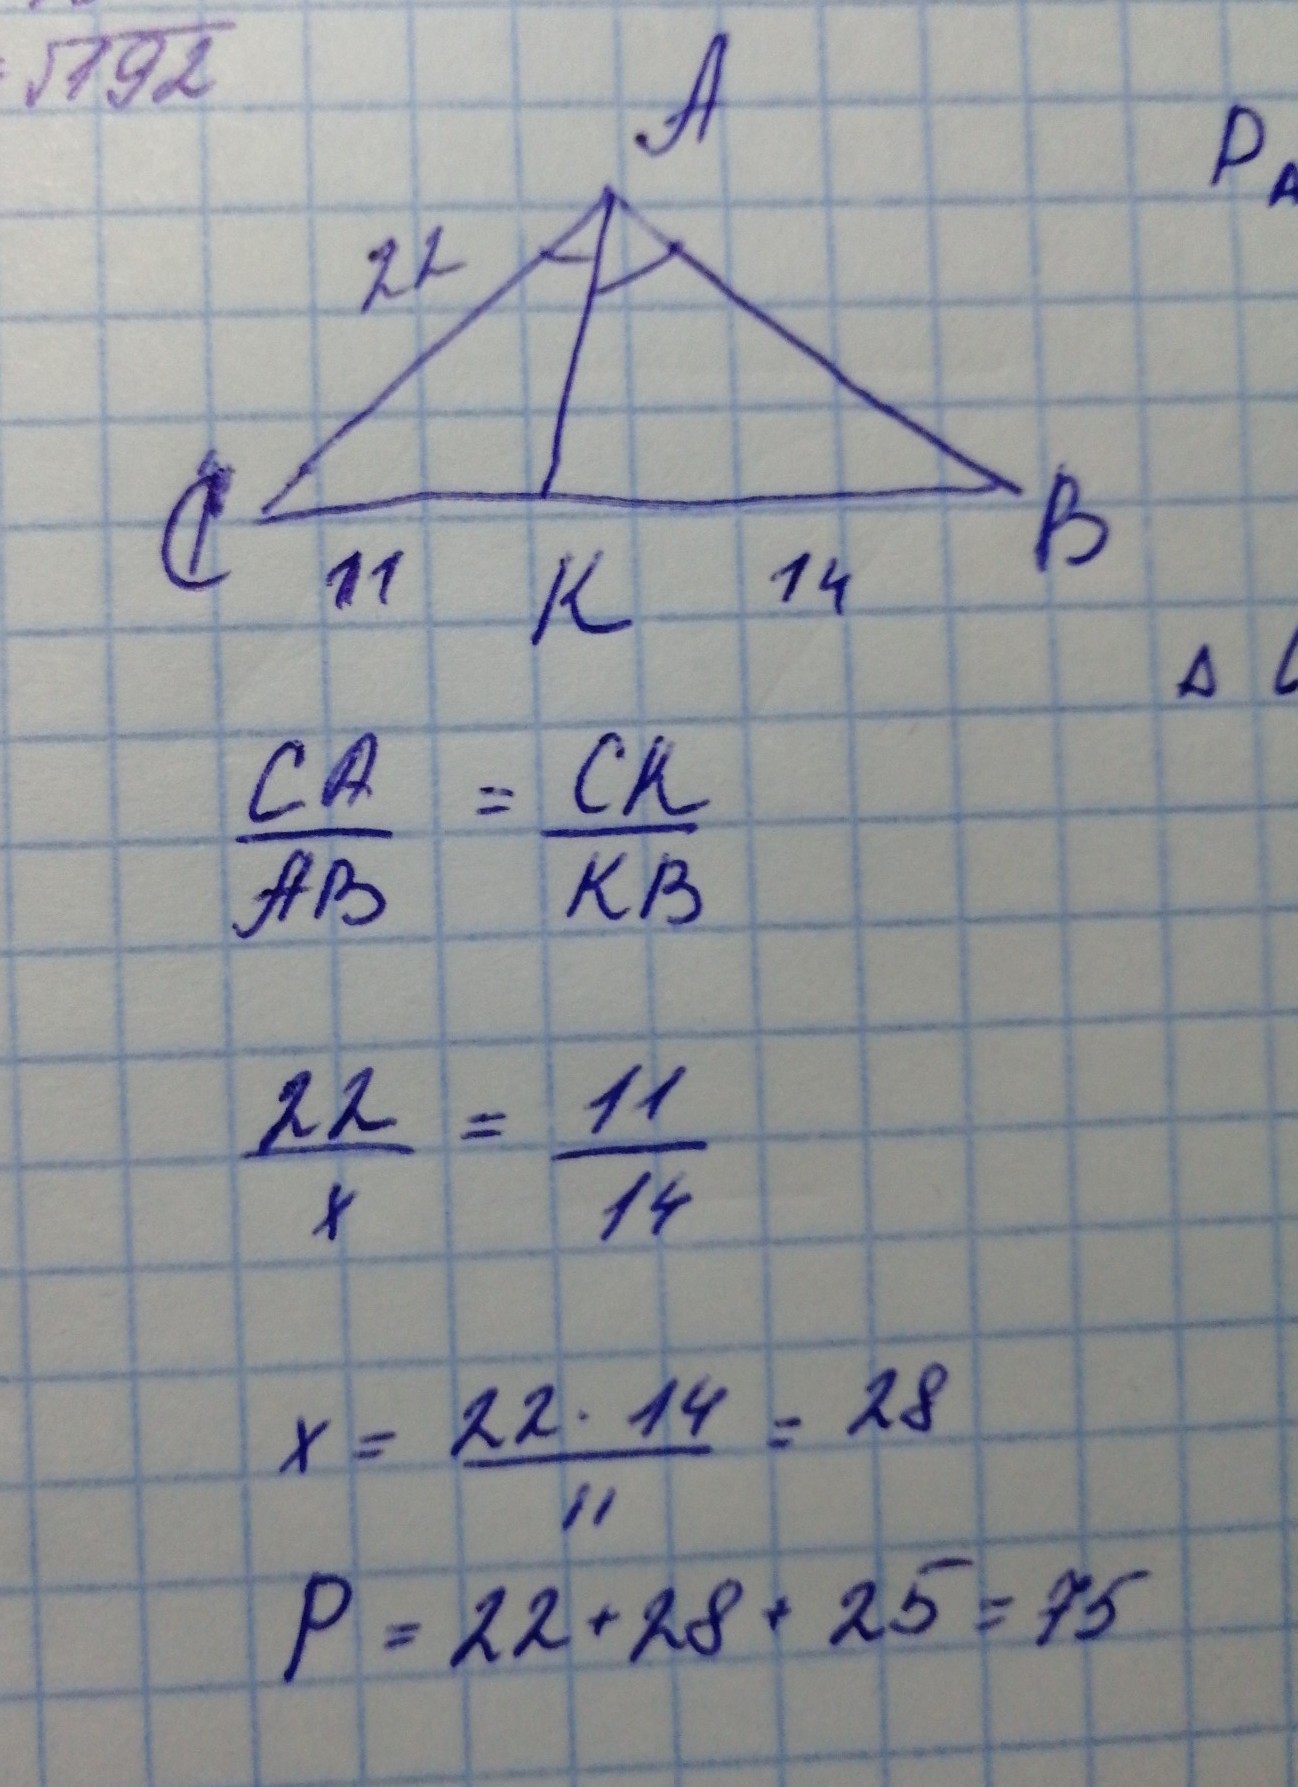 √192
A
P A
22
C
B
11
K
14
Δ
CA/AB = CK/KB
22/x = 11/14
x = 22 · 14/11 = 28
P = 22 + 28 + 25 = 75